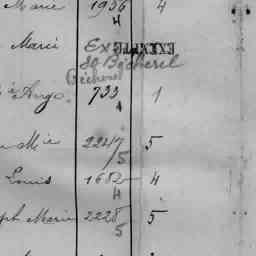 Marie 1936 4
4
Marie Ex EXEMPTE
Bécherel
Bécherel
Ange 733 1
1
Mie 2247 5
5
Louis 1682 4
4
ph Marie 2228 5
5